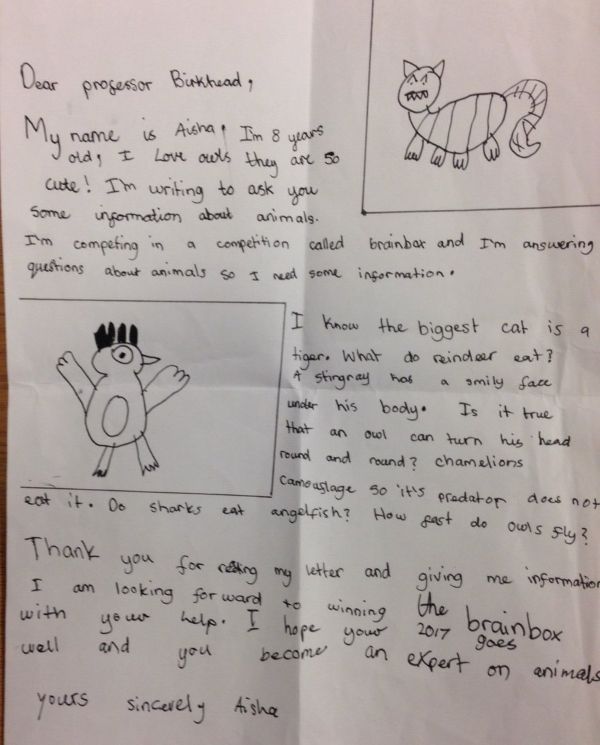 Dear professor Birkhead,
My name is Aisha, I'm 8 years
old, I Love owls they are so
cute! I'm writing to ask you
some information about animals.
I'm competing in a competition called brainbox and I'm answering
questions about animals so I need some information.
I know the biggest cat is a
tiger. What do reindeer eat?
A stingray has a smily face
under his body. Is it true
that an owl can turn his head
round and round? chamelions
camouslage so it's predator does not
eat it. Do sharks eat angelfish? How fast do owls fly?
Thank you for my letter and giving me information
I am looking forward to winning the brainbox
with your help. I hope your 2017 goes
well and you become an expert on animals
yours sincerely Aisha